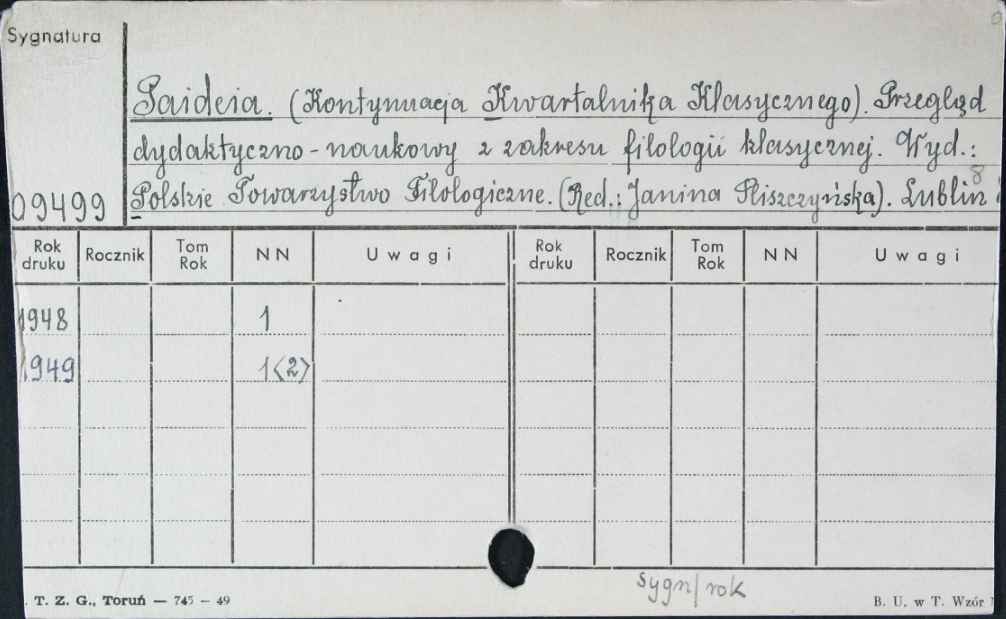 Sygnatura
Paideia. (Kontynuacja Kwartalnika Klasycznego). Przegląd
dydaktyczno-naukowy z zakresu filologii klasycznej. Wyd.:
8
09499 Polskie Towarzystwo Filologiczne. (Red.: Janina Pliszczyńska). Lublin
Rok druku Rocznik Tom Rok NN Uwagi Rok druku Rocznik Tom Rok NN Uwagi
1948 1
1949 1(2)
sygn/rok
T. Z. G., Toruń — 745 – 49 B. U. w T. Wzór